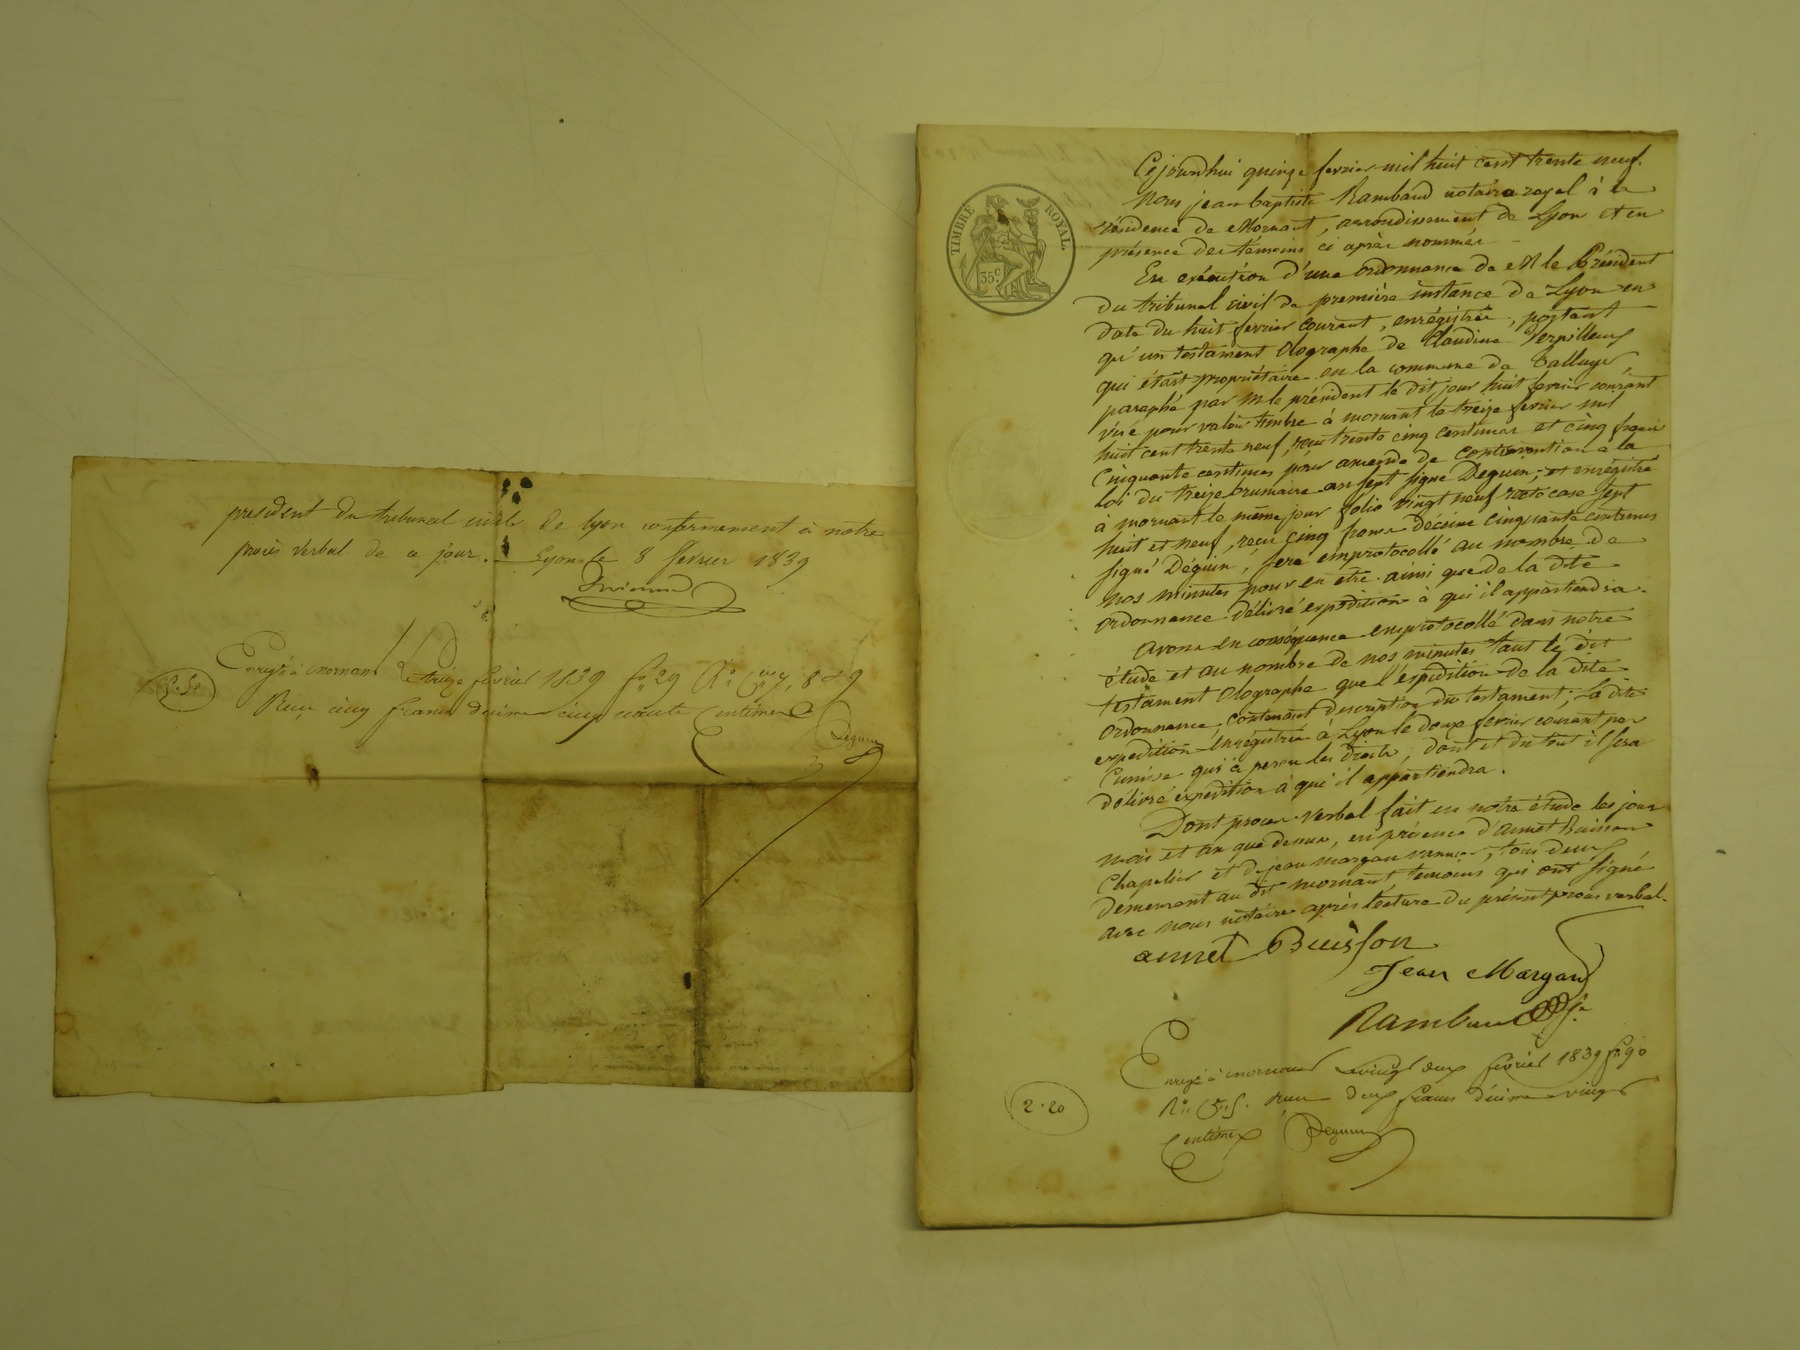 president du tribunal civil de lyon conformement à notre
procès verbal de ce jour. Lyon le 8 fevrier 1839
5.50
Enregé à Mornant Le treize février 1839 fo 29 Ro Ces 7, 8 & 9
Reçu cinq francs decime cinquante Centimes
Deguin
TIMBRE ROYAL.
35c.
Cejourdhui quinze fevrier mil huit cent trente neuf.
Nous jean baptiste Rambaud notaire royal à la
résidence de Mornant, arrondissement de Lyon et en
présence des temoins ci après nommés
En exécution d'une ordonnance de M le Président
du tribunal civil de première instance de Lyon en
date du huit fevrier courant, enrégistrée, portant
qu'un testament Olographe de Claudine Verpilleux
qui était propriétaire en la commune de Talluyer,
paraphé par M le président le dit jour huit fevrier courant
visé pour valoir timbre à mornant le treize fevrier mil
huit cent trente neuf, reçu trente cinq centimes et cinq francs
Cinquante centimes pour amende de contravention à la
loi du treize brumaire an sept signé Deguin; et enrégistré
à mornant le même jour folio vingt neuf recto case sept
huit et neuf, reçu cinq francs décime cinquante centimes
signé Déguin, sera emprotocollé au nombre de
nos minutes pour en être ainsi que de la dite
ordonnance délivré expédition à qui il appartiendra.
Avons en conséquence emprotocollé dans notre
étude et au nombre de nos minutes tant le dit
testament Olographe que l'expédition de la dite
ordonnance, contenant description du testament; la dite
expédition enrégistrée à Lyon le douze fevrier courant par
qui a perçu les droits; dont et du tout il sera
délivré expédition à qui il appartiendra.
Dont procès-verbal fait en notre étude les jour
mois et an que dessus, en présence d'aimet Buisson
Chapelier et de jean margau, tous deux
demeurant au dit mornant temoins qui ont signé
avec nous notaire après lecture du présent procès verbal.
aimet Buisson
Jean Margau
Rambaud
2.20
Enregé à Mornant Le vingt deux février 1839 fo 90
Ro C 5. Reçu deux francs décime vingt
Centimes Deguin